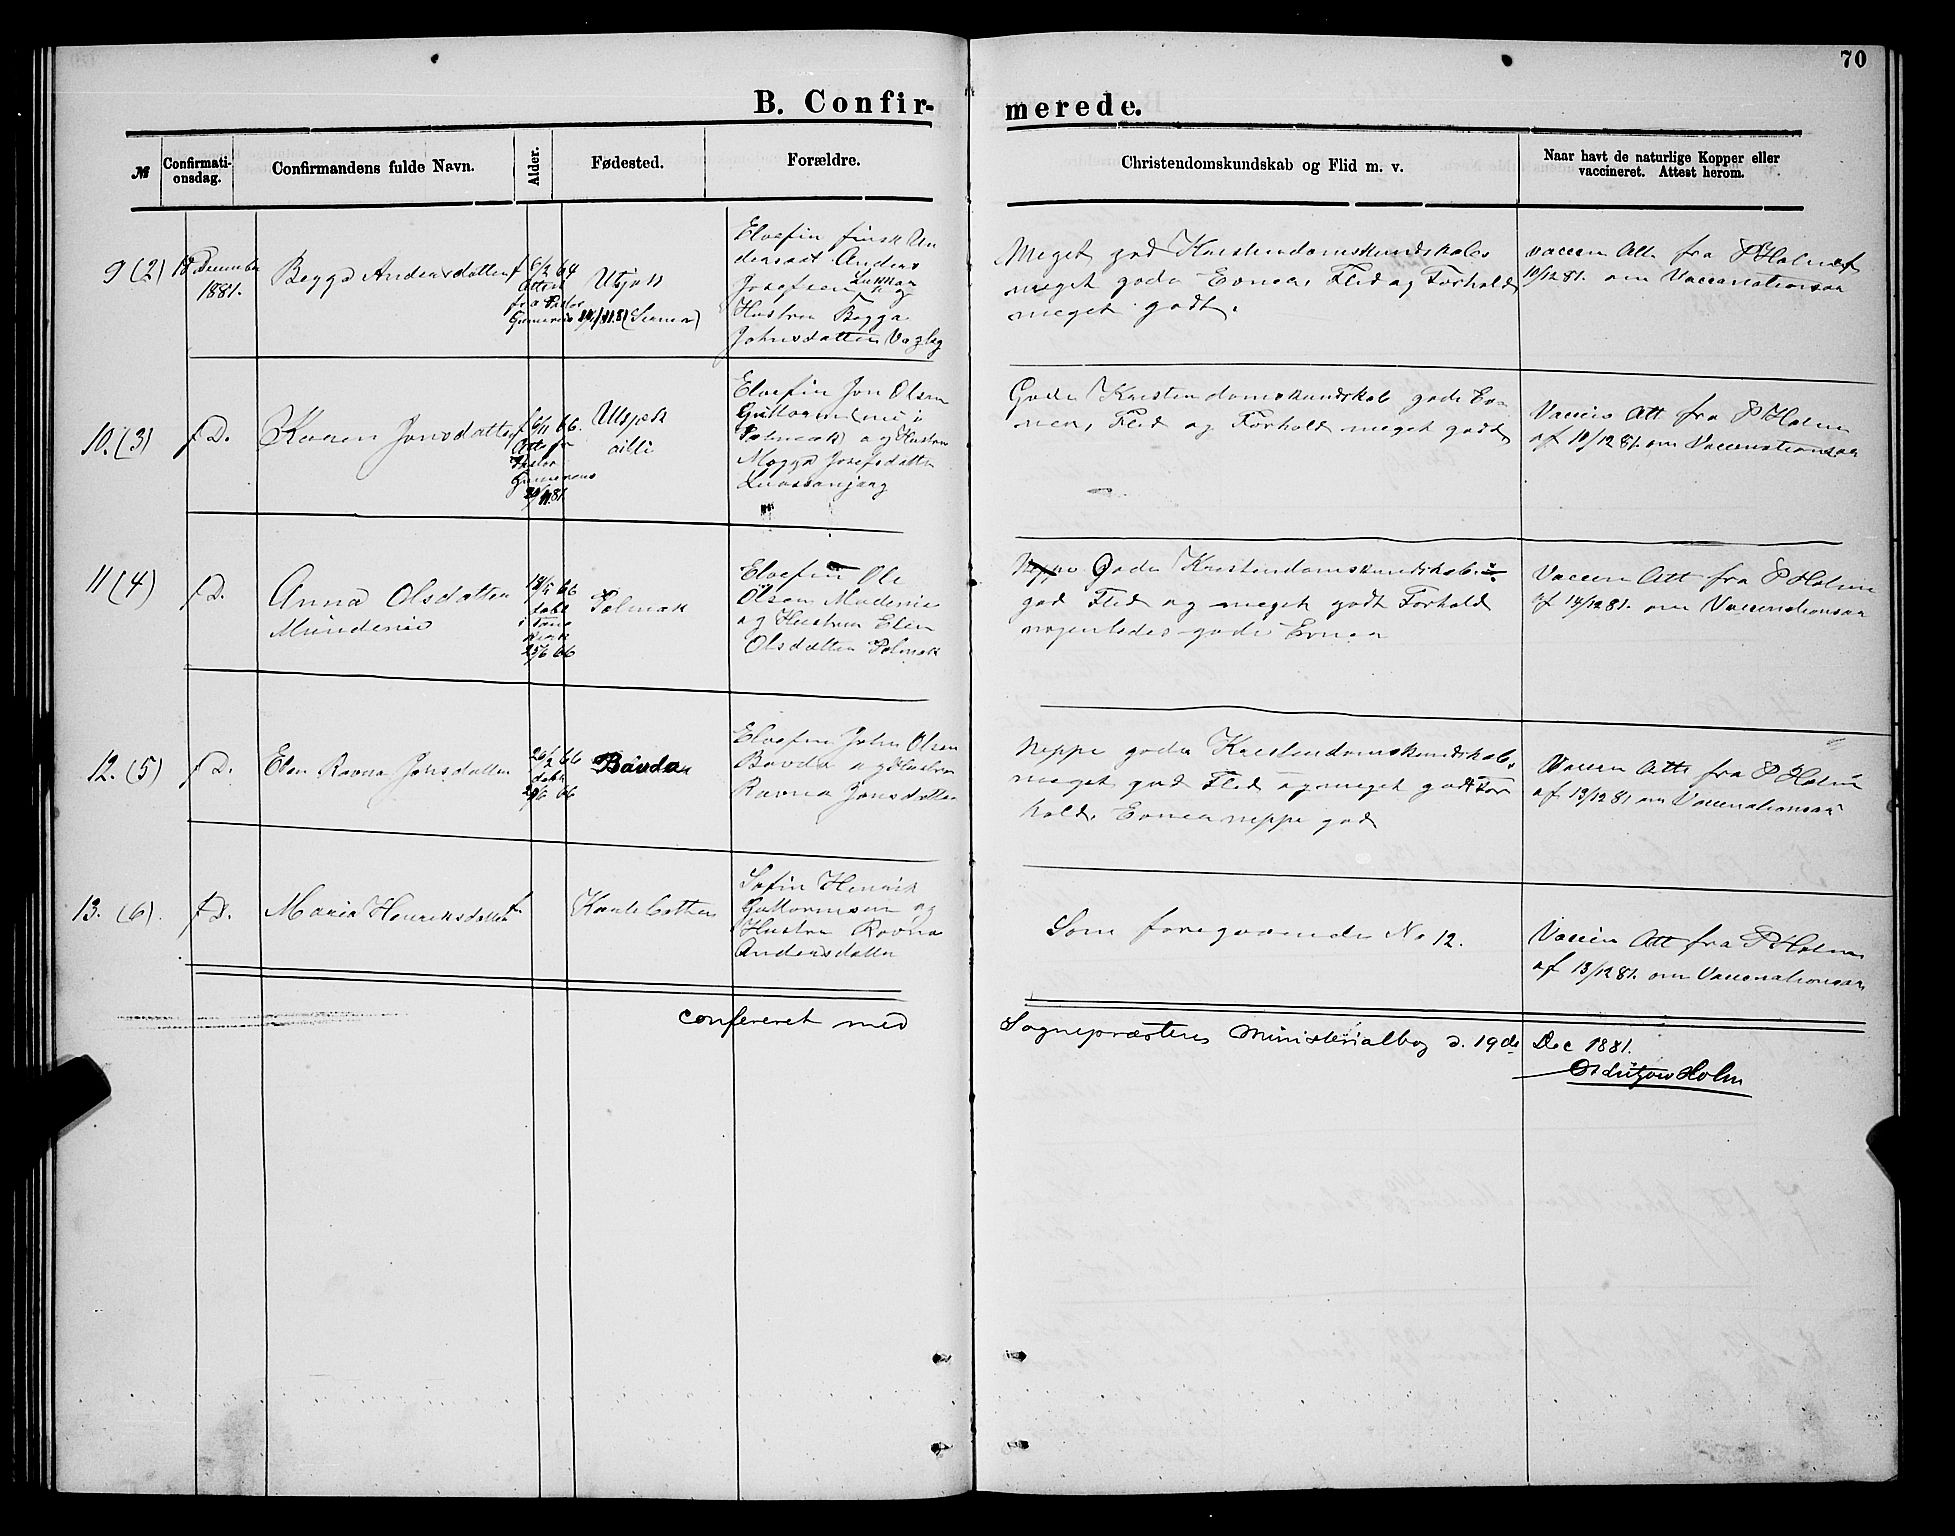 70
B. Confir- merede.
№
Confirmati-
onsdag.
Confirmandens fulde Navn.
Alder.
Fødested.
Forældre.
Christendomskundskab og Flid m. v.
Naar havt de naturlige Kopper eller
vaccineret. Attest herom.
9 (2)
18 December
1881.
Begga Andersdatter
f 6/2 64
Attest
fra Pastor
Utsjok
Elvefin finsk Un
dersaat Anders
Josefsen
og
Hustru Begga
Johnsdatter
Meget god Kristendomskundskab
meget gode Evner, Flid og Forhold
meget godt.
Vaccin Att. fra P Holm af
10/12 81. om Vaccinationen
10. (3)
f D.
Karen Jonsdatter
f 6/11 66.
Att fr
Pastor
20/11 81.
Utsjok
Elvefin Jon Olsen
Guttorm
Polmak) og Hustru
Magga Josefsdatter
Gode Kristendomskundskab gode Ev-
ner, Flid og Forhold meget godt
Vaccin Att fra P Holm
af 10/12 81. om Vaccinationen
11 (4)
f D.
Anna Olsdatter
Mundenie
66
døbt
i Tana
Kirke
25/6 66
Polmak
Elvefin Ole
Olsen Mudenie
og Hustru Elen
Olsdatter Polmak
Neppe Gode Kristendomskundskab.
god Flid og meget godt Forhold
nogenledes gode Evner
Vaccin Att fra P Holm
af 14/12 81. om Vaccinationen
12. (5)
f D.
Elen Ravna Jonsdatter
20/2 66
døbt
66
Bavda
Elvefin John Olsen
Bavda og Hustru
Ravna Jonsdatter
Neppe gode Kristendomskundskab.
meget god Flid og meget godt For
hold. Evner neppe god
Vaccin Att fra P Holm
af 13/12 81 om Vaccinationen
13. (6).
f D.
Maria Henriksdatter
Søfin Henrik
Guttormsen og
Hustru Ravna
Andersdatter
Som foregaaende No 12.
Vaccin Att fra P Holm
af 13/12 81. om Vaccinationen
confereret med Sognepræstens Ministerialbog d. 19de Dec 1881.
Holm